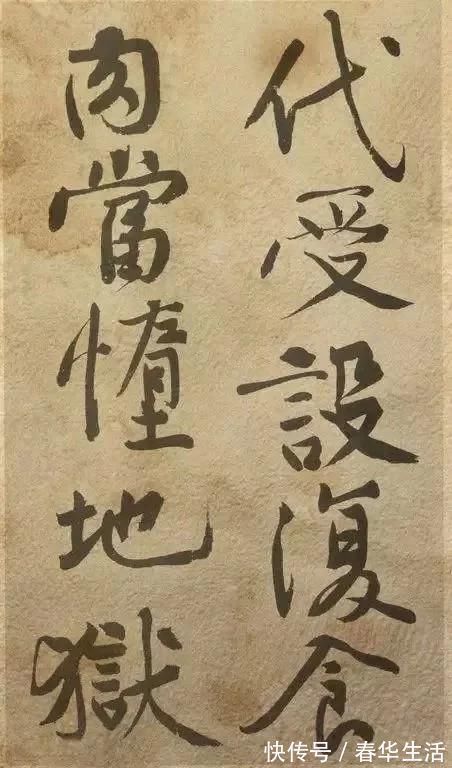 代受設復食
肉當墮地獄
快传号/春华生活